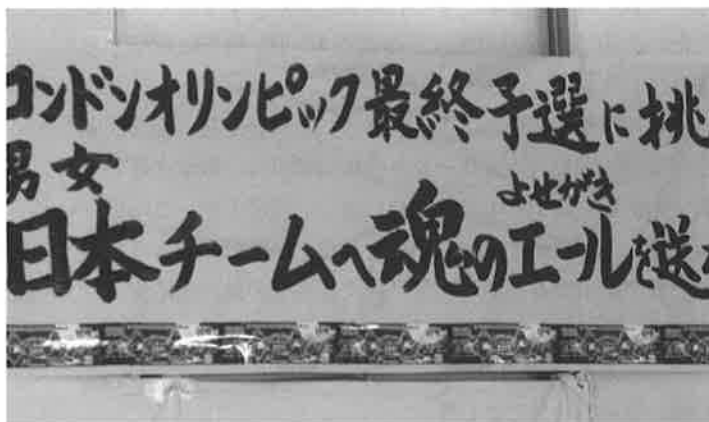 コンドンオリンピック最終予選に挑
男女
よせがき
日本チームへ魂のエールを送